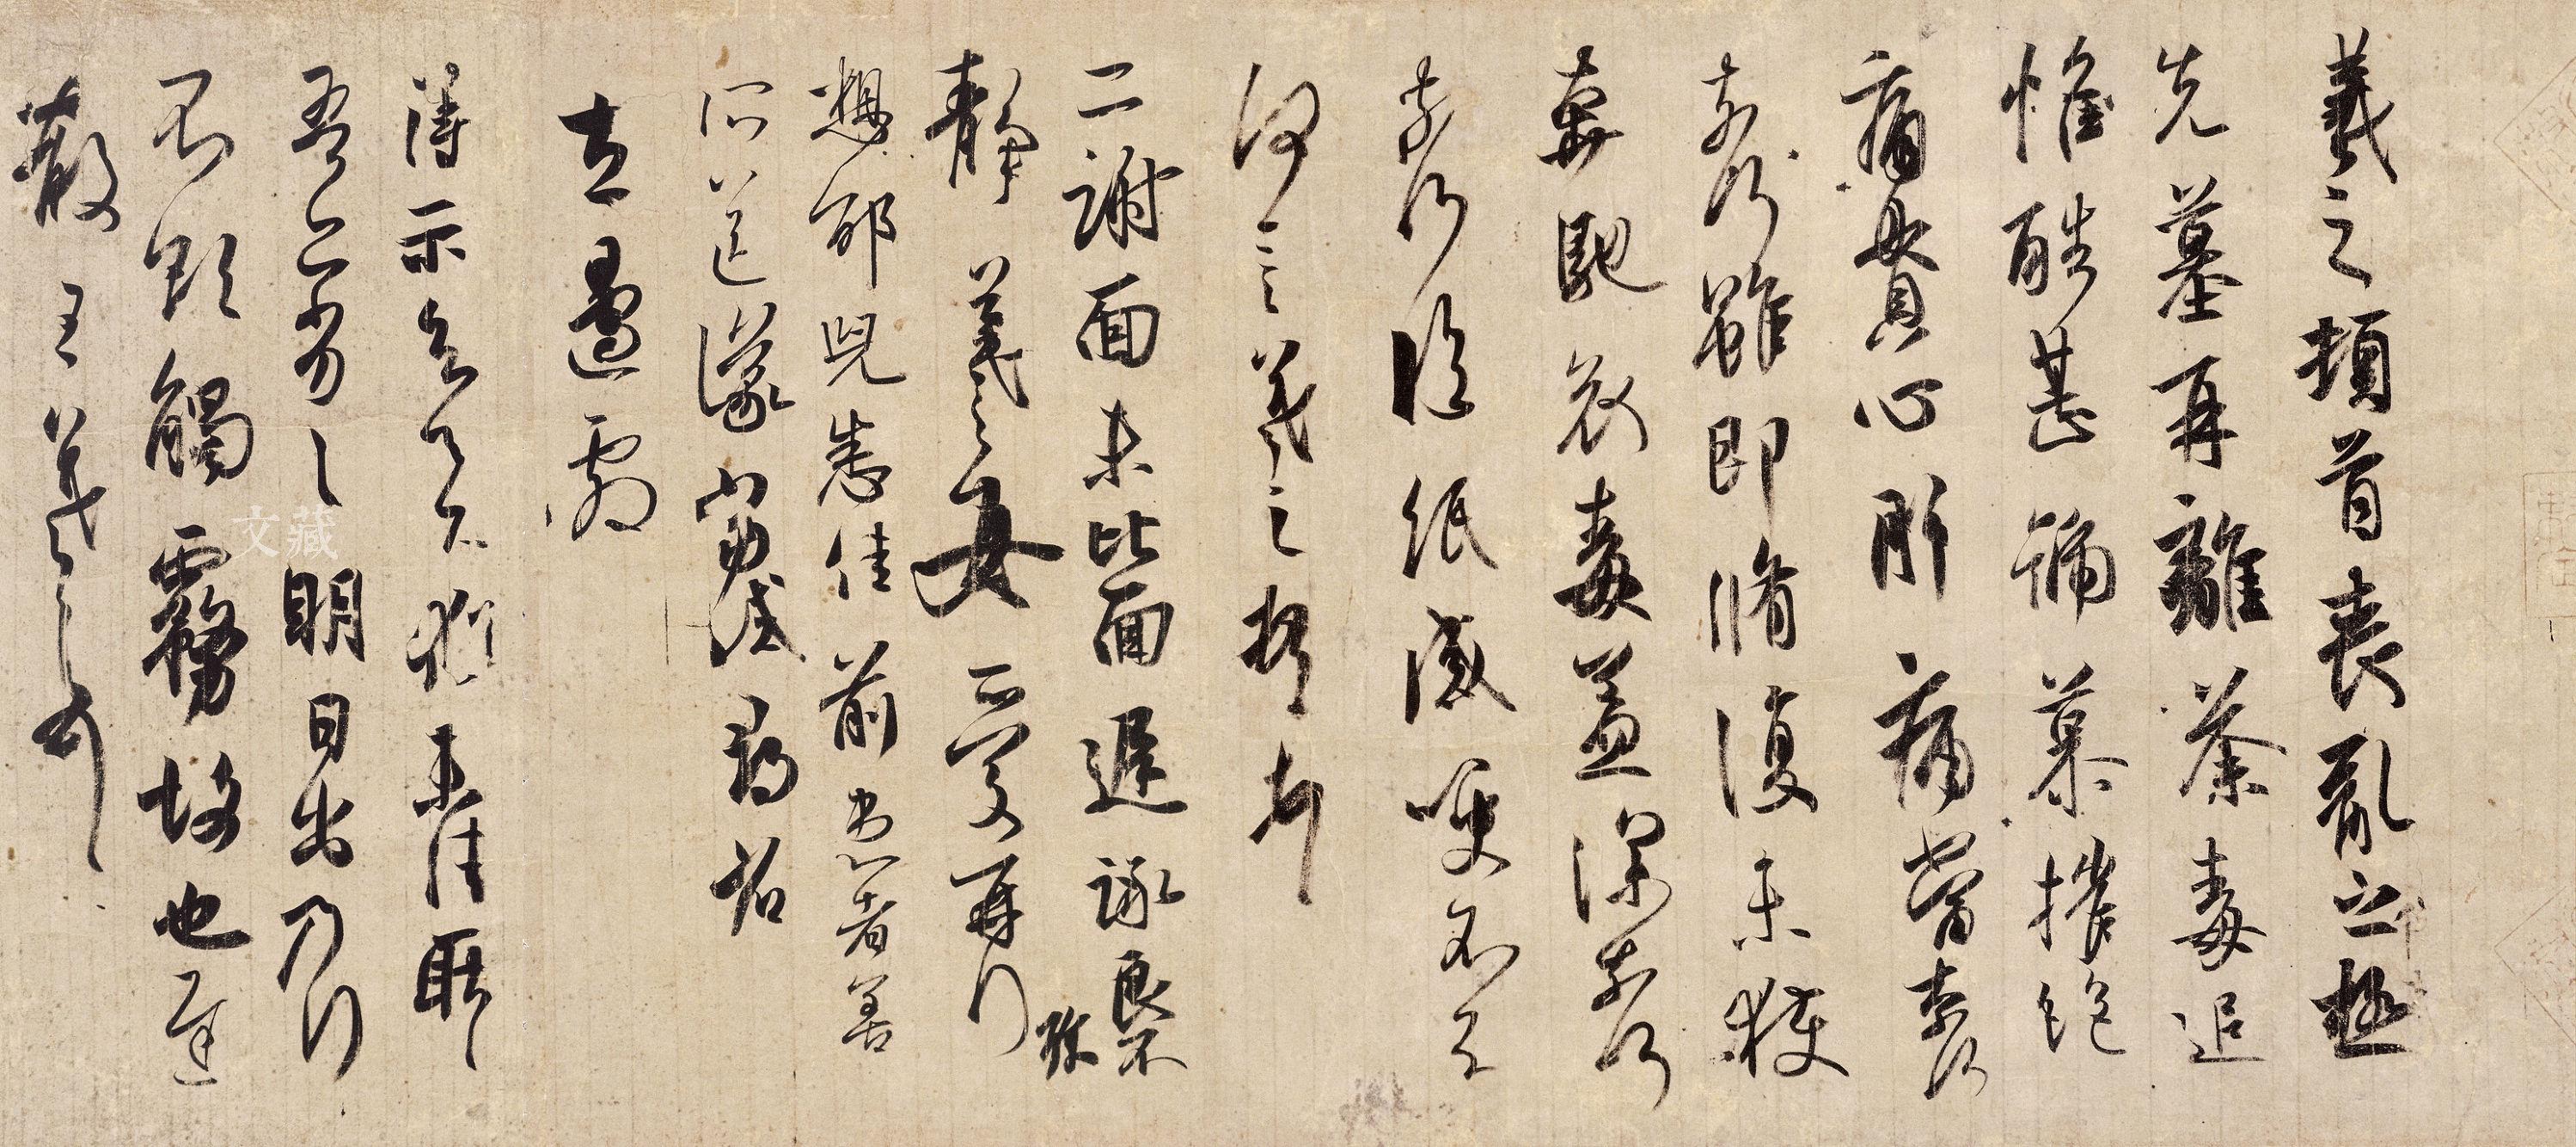 羲之頓首喪亂之極
先墓再離荼毒追
惟酷甚號慕摧絶
痛貫心肝痛當奈何
奈何雖即脩復未獲
奔馳哀毒益深奈何
奈何臨紙感哽不知
何言羲之頓首頓首
二謝面未比面遲詠良不
靜羲之女愛再拜
想邵兒悉佳前患者善
所送議當試尋省
左邊劇
得示知足下猶未佳耿耿
吾亦劣劣明日出乃行
不欲觸霧故也遲
散王羲之頓首
文藏